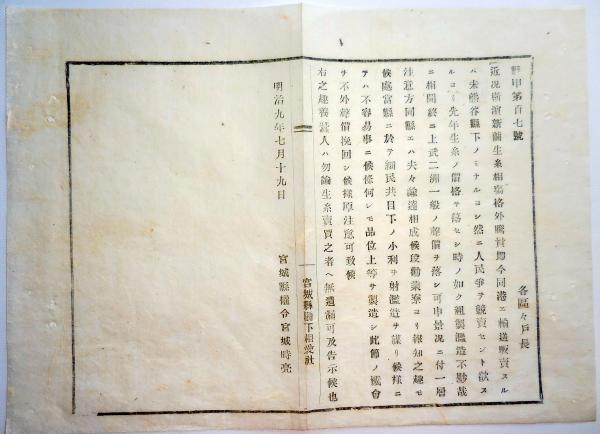 縣甲第百七號
各區々戸長
近況橫濱新繭生糸相塲格外騰貴即今同港エ輸送販賣スル
ハ未熊谷縣下ノミナルヨシ然ニ人民爭テ競賣セント欲ス
ルヨリ先年生糸ノ價格ヲ落セシ時ノ如ク粗製濫造不尠哉
ニ相聞終ニ上武二洲一般ノ聲價ヲ落シ可申景况ニ付一層
注意方同縣エハ夫々諭達相成候段勸業寮ヨリ報知之趣モ
候處當縣ニ於テ細民共目下ノ小利ヲ射濫造ヲ謀リ候樣ニ
テハ不容易事ニ候條何レモ品位上等ヲ製造シ此節ノ機會
ヲ不外聲價挽回シ候樣厚注意可致候
右之趣養蠶人ハ勿論生糸賣買之者ヘ無遺漏可及告示候也
宮城縣
明治九年七月十九日
宮城縣權令宮城時亮